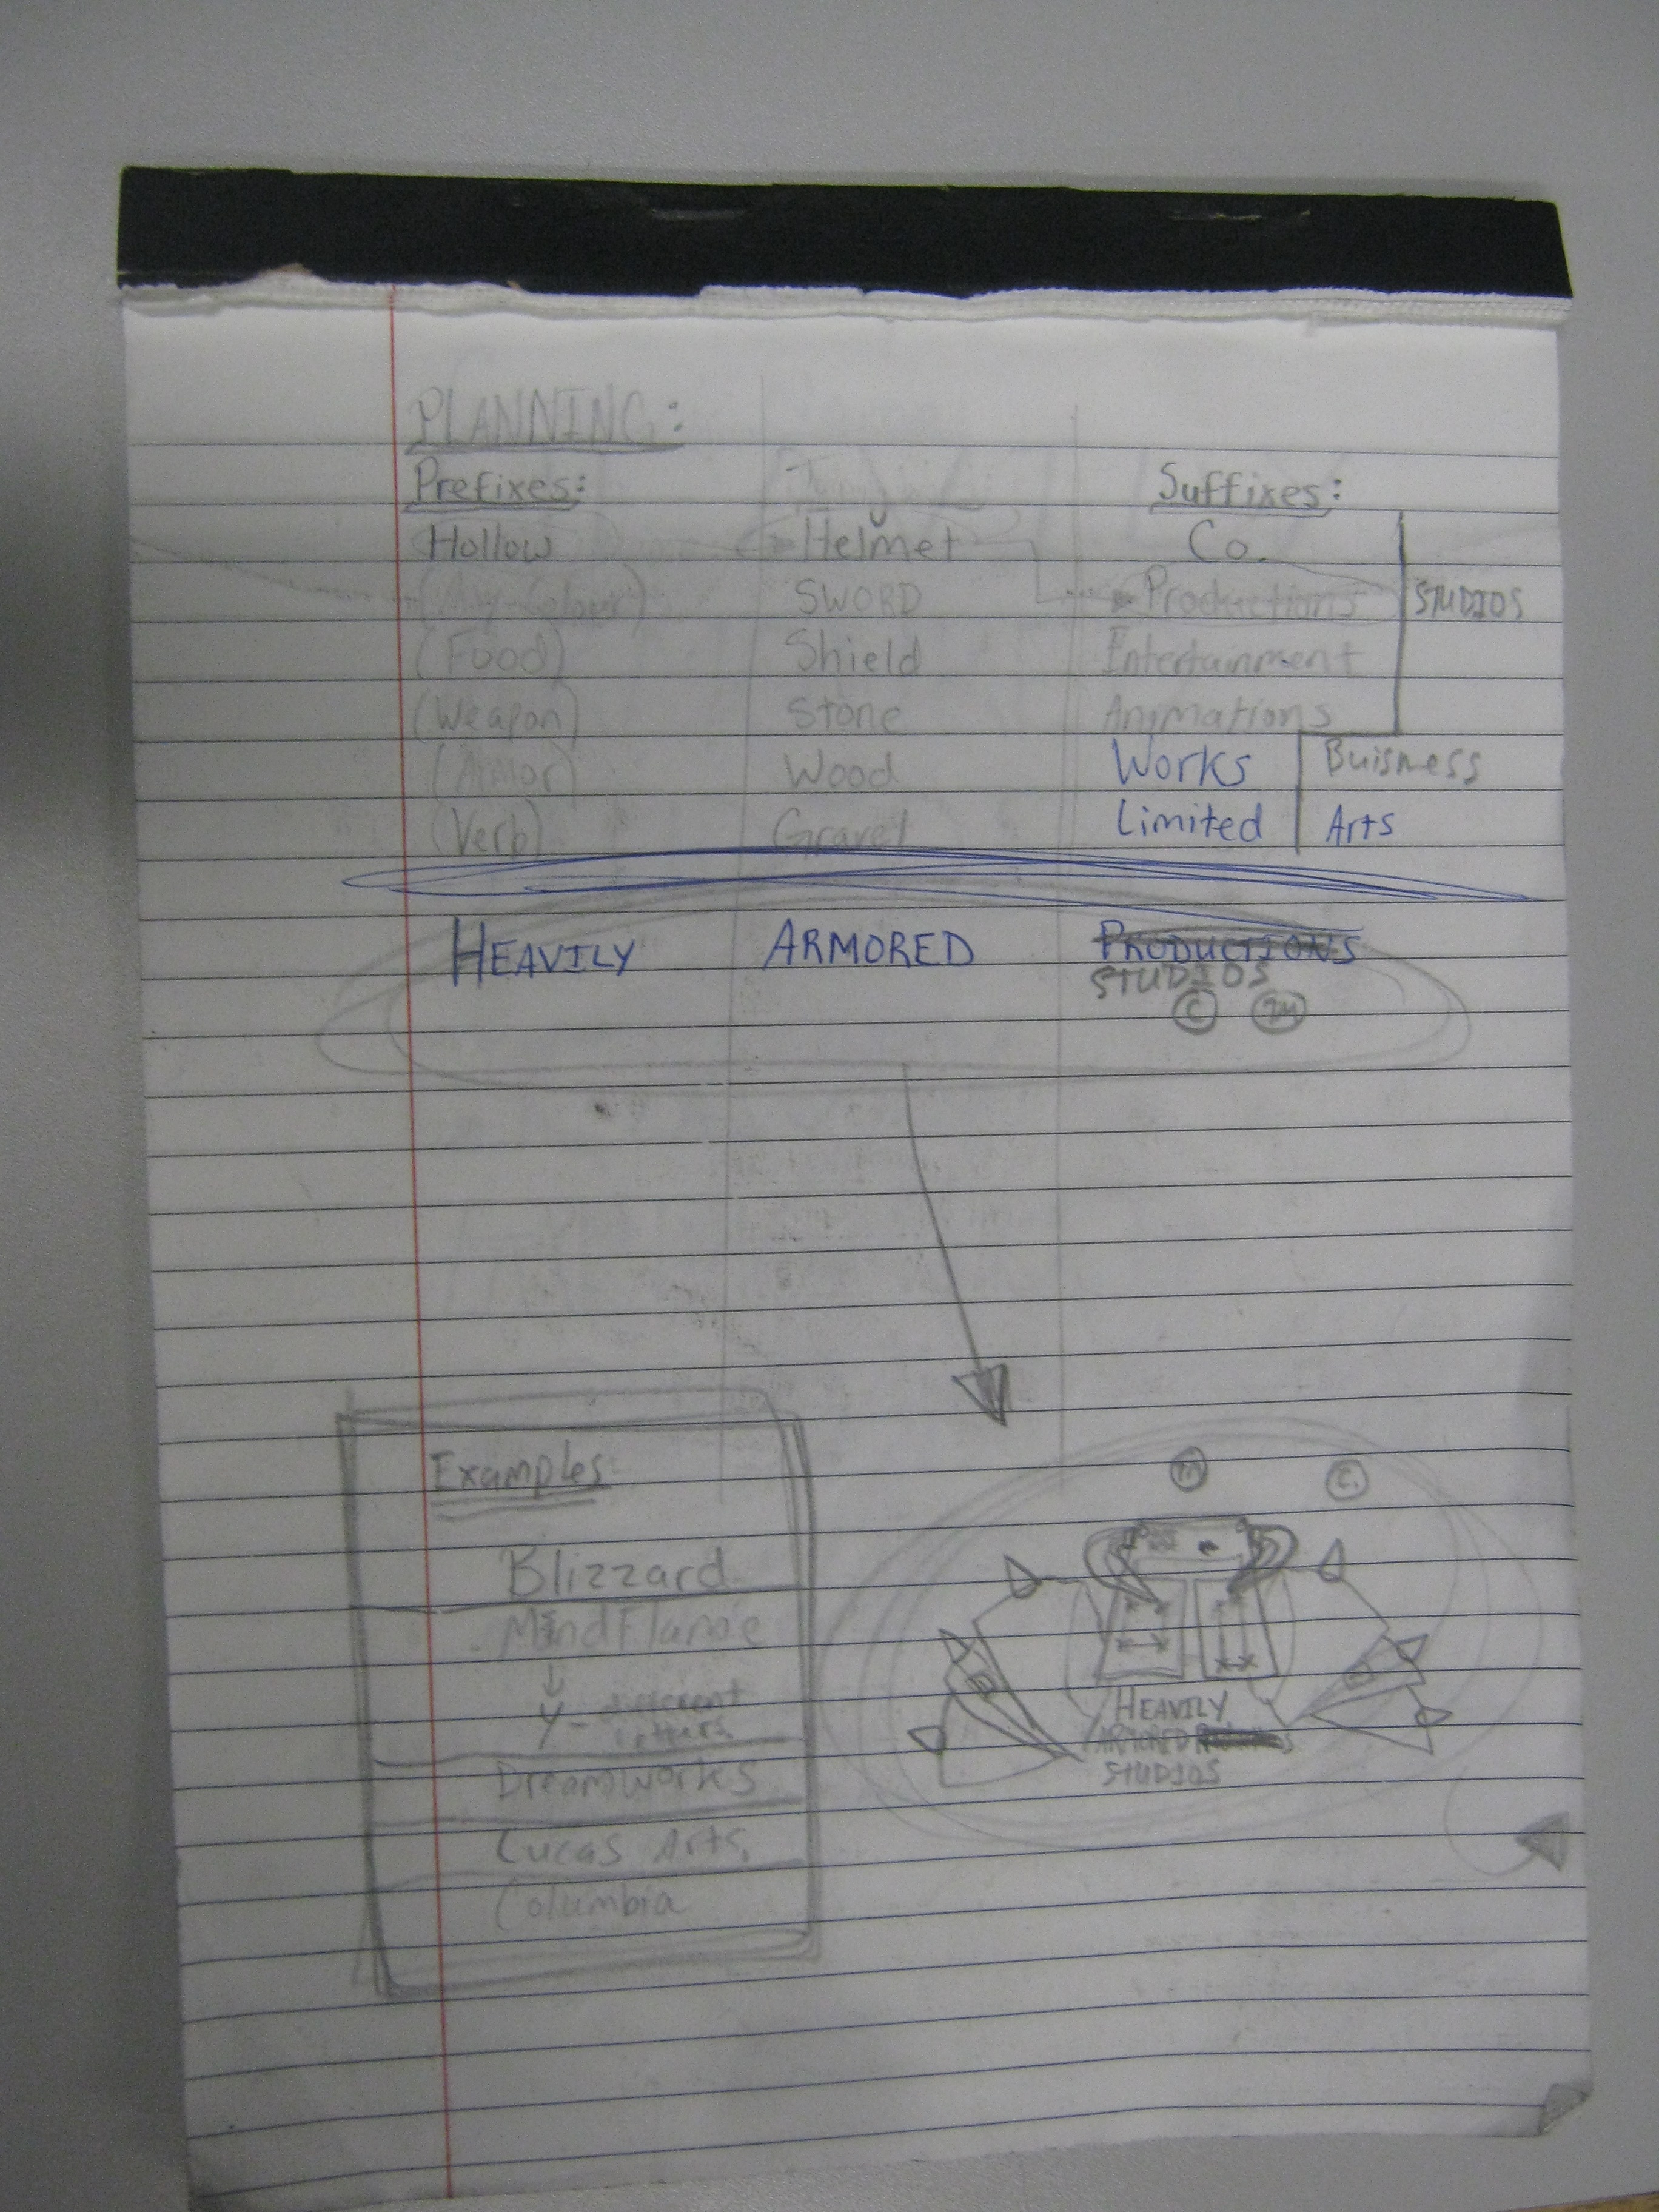 PLANNING:
Prefixes: Suffixes:
Hollow Helmet Co.
SWORD Productions STUDIOS
(Food) Shield Entertainment
(Weapon) Stone Animations
(Armor) Wood Works Buisness
(Verb) Gravel Limited Arts
HEAVILY ARMORED PRODUCTIONS
STUDIOS
© TM
Examples:
TM C
Blizzard
MindFlame
↓
Y - different
letters
HEAVILY
ARMORED
STUDIOS
DreamWorks
Lucas Arts.
Columbia